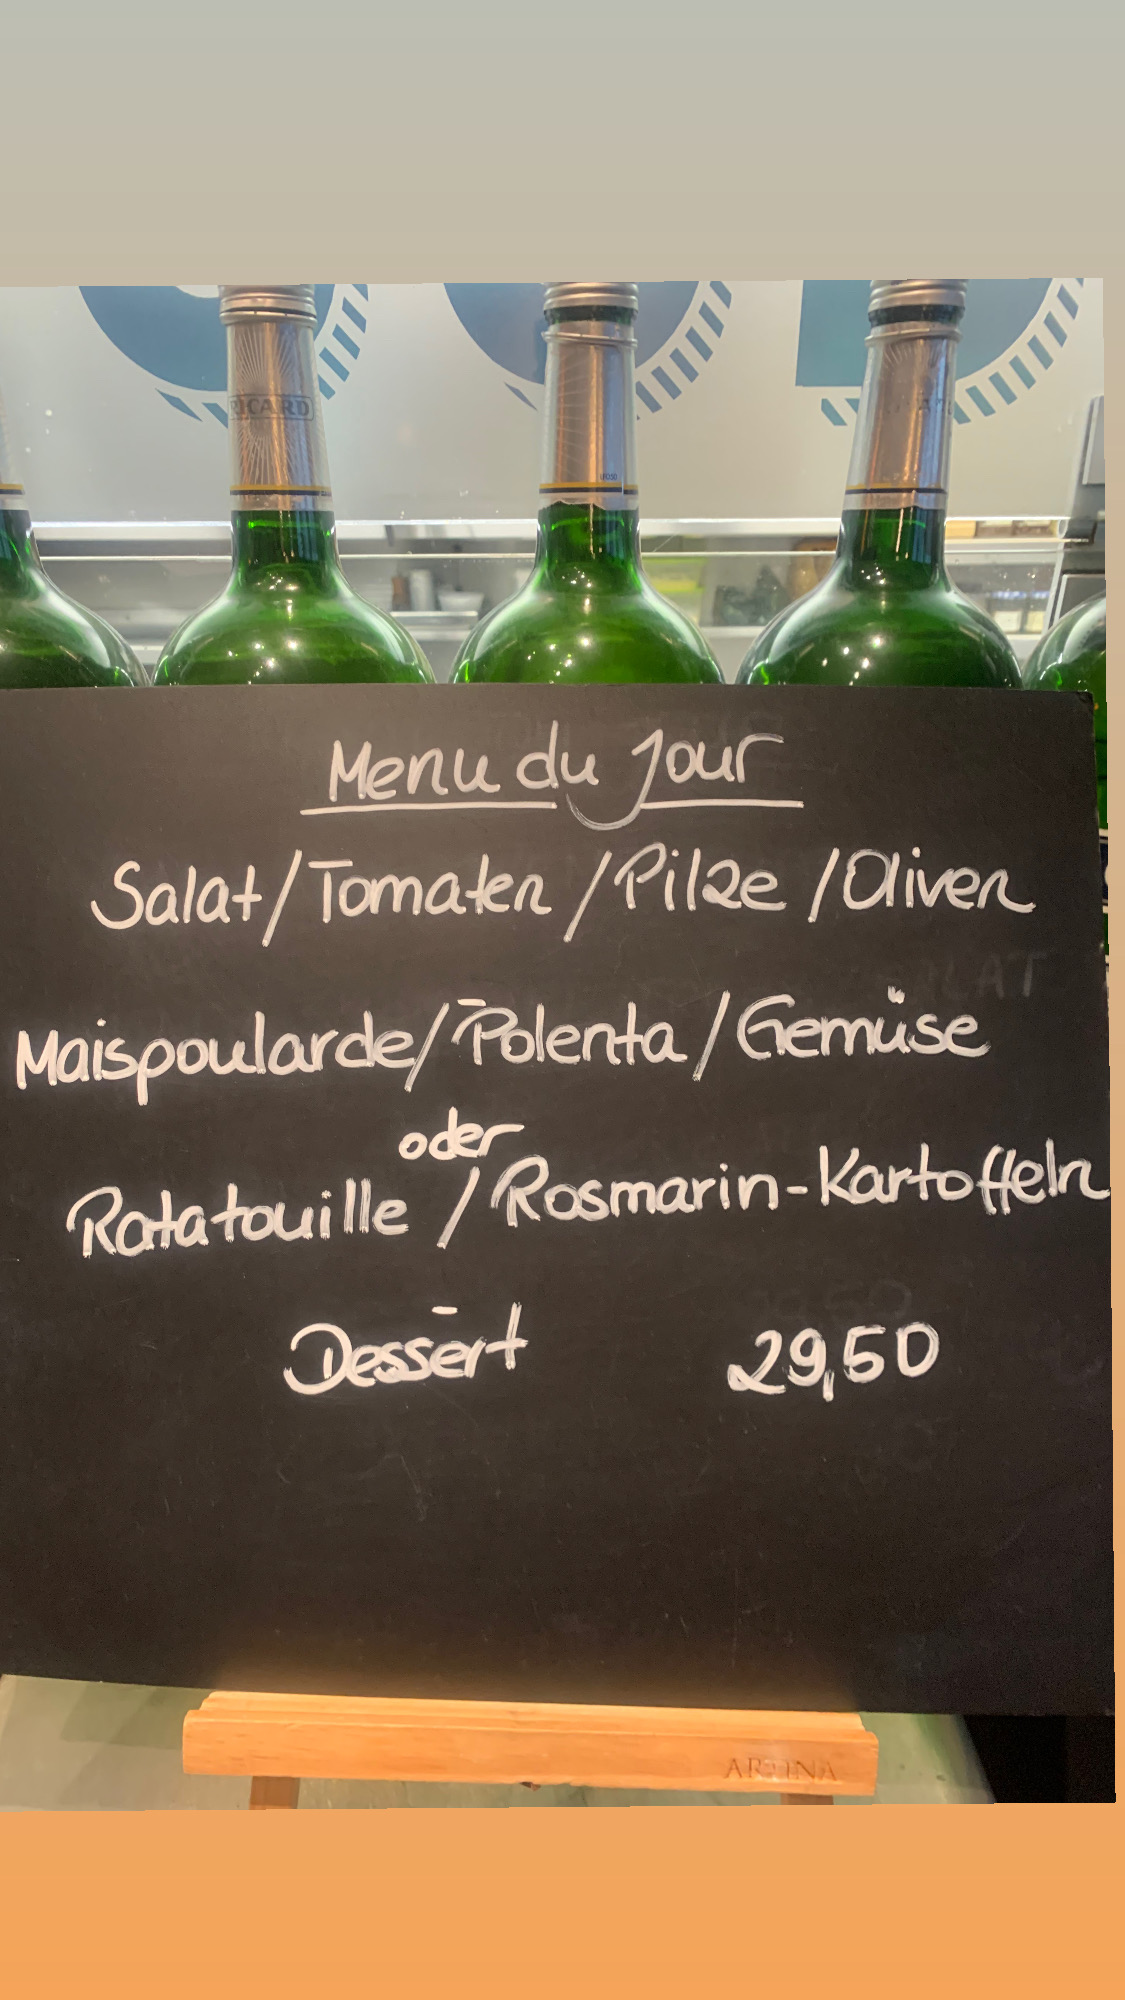 RICARD
Menu du Jour
Salat/Tomaten/Pilze/Oliven
Maispoularde/Polenta/Gemüse
oder
Ratatouille/Rosmarin-Kartoffeln
Dessert 29,50
ARTINA